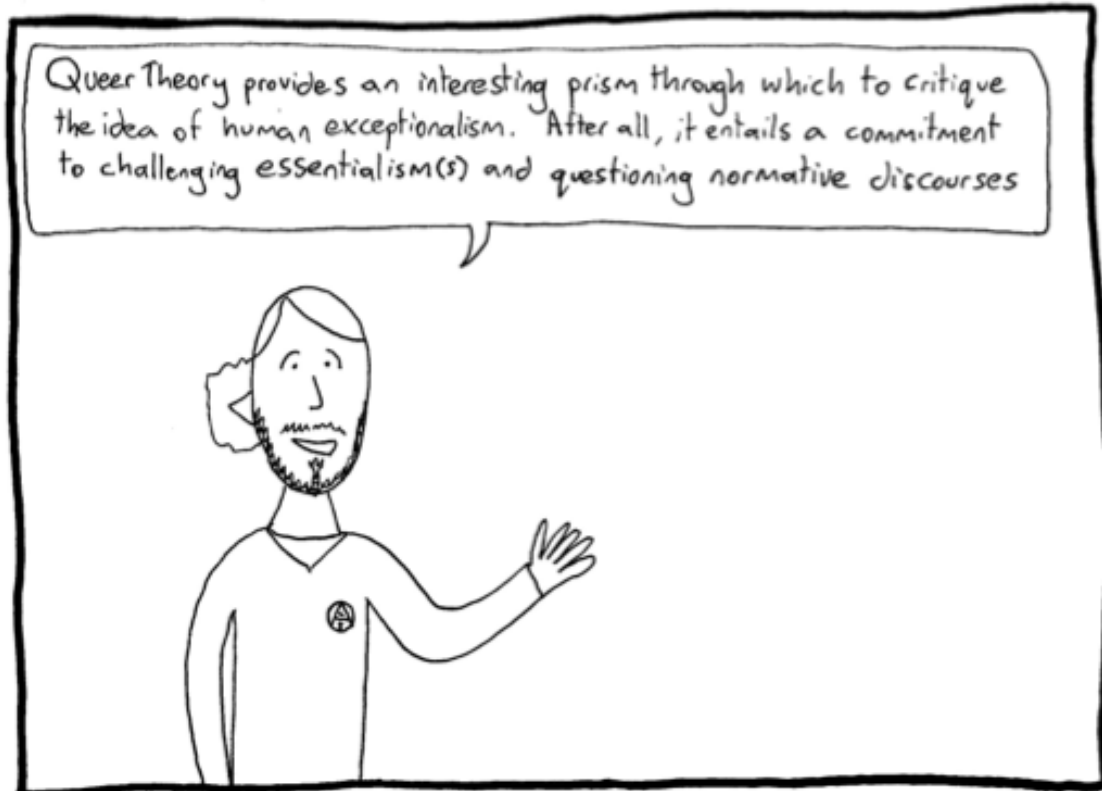 Queer Theory provides an interesting prism through which to critique
the idea of human exceptionalism. After all, it entails a commitment
to challenging essentialism(s) and questioning normative discourses